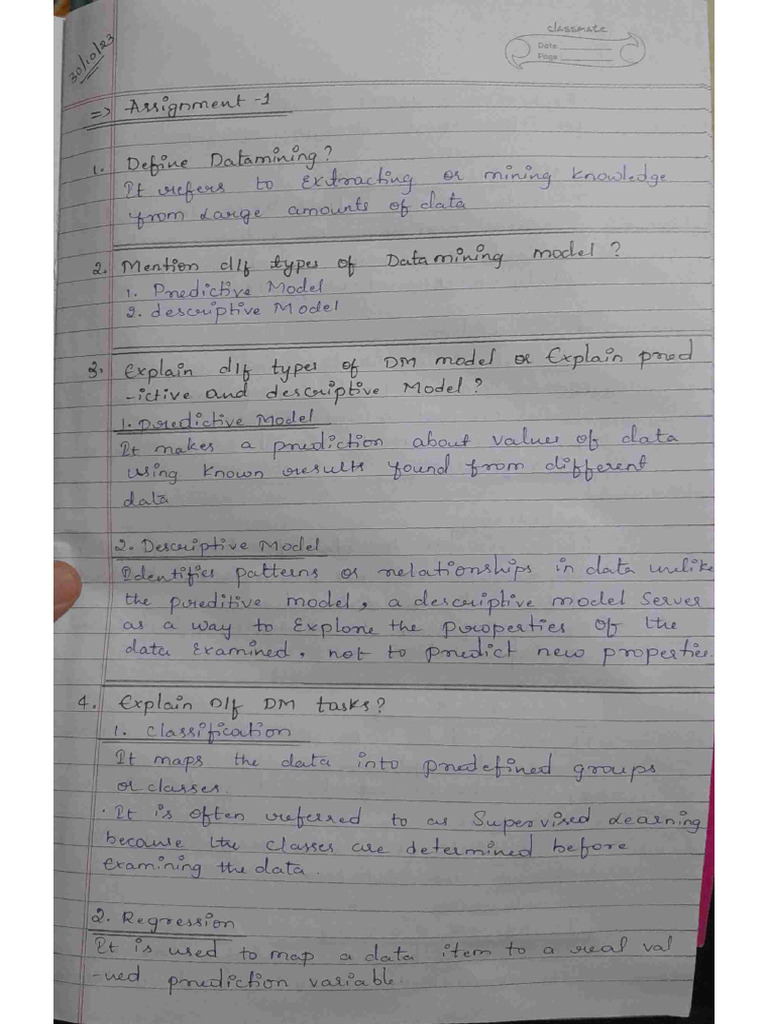 classmate
Date
Page
30/10/23
=> Assignment -1
1. Define Datamining?
It refers to Extracting or mining knowledge
from Large amounts of data
2. Mention d/f types of Data mining model?
1. Predictive Model
2. descriptive Model
3. Explain d/f types of DM model or Explain pred
-ictive and descriptive Model?
1. predictive Model
It makes a prediction about values of data
using known results found from different
data
2. Descriptive Model
Identifies patterns or relationships in data unlike
the preditive model, a descriptive model Server
as a way to Explore the properties of the
data Examined, not to predict new properties.
4. Explain D/f DM tasks?
1. classification
It maps the data into predefined groups
or classes.
. It is often referred to as Supervised Learning
because the classes are determined before
examining the data.
2. Regression
It is used to map a data item to a real val
-ued prediction variable.